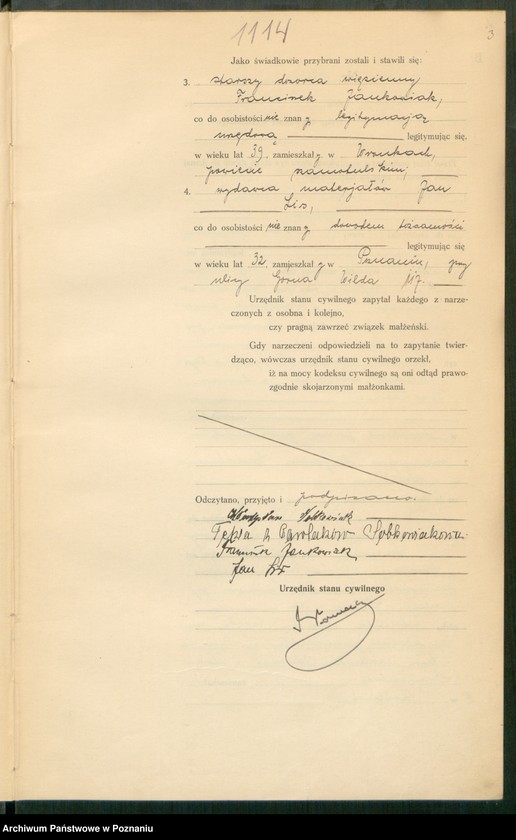 1114
3
Jako świadkowie przybrani zostali i stawili się:
3. starszy dozorca więzienny
Franciszek Jankowiak,
co do osobistości nie znany legitymacją
urzędową legitymując się,
w wieku lat 39, zamieszkały w Wronkach,
powiecie szamotulskim;
4. wydawca materjałów Jan
Lis,
co do osobistości nie znany dowodem tożsamości
legitymując się
w wieku lat 32, zamieszkały w Poznaniu, przy
ulicy Górna Wilda 117.
Urzędnik stanu cywilnego zapytał każdego z narze-
czonych z osobna i kolejno,
czy pragną zawrzeć związek małżeński.
Gdy narzeczeni odpowiedzieli na to zapytanie twier-
dząco, wówczas urzędnik stanu cywilnego orzekł,
iż na mocy kodeksu cywilnego są oni odtąd prawo-
zgodnie skojarzonymi małżonkami.
Odczytano, przyjęto i podpisano.
Władysław
z Pawlaków Sobkowiakowa
Franciszek Jankowiak
Jan Lis
Urzędnik stanu cywilnego
Archiwum Państwowe w Poznaniu